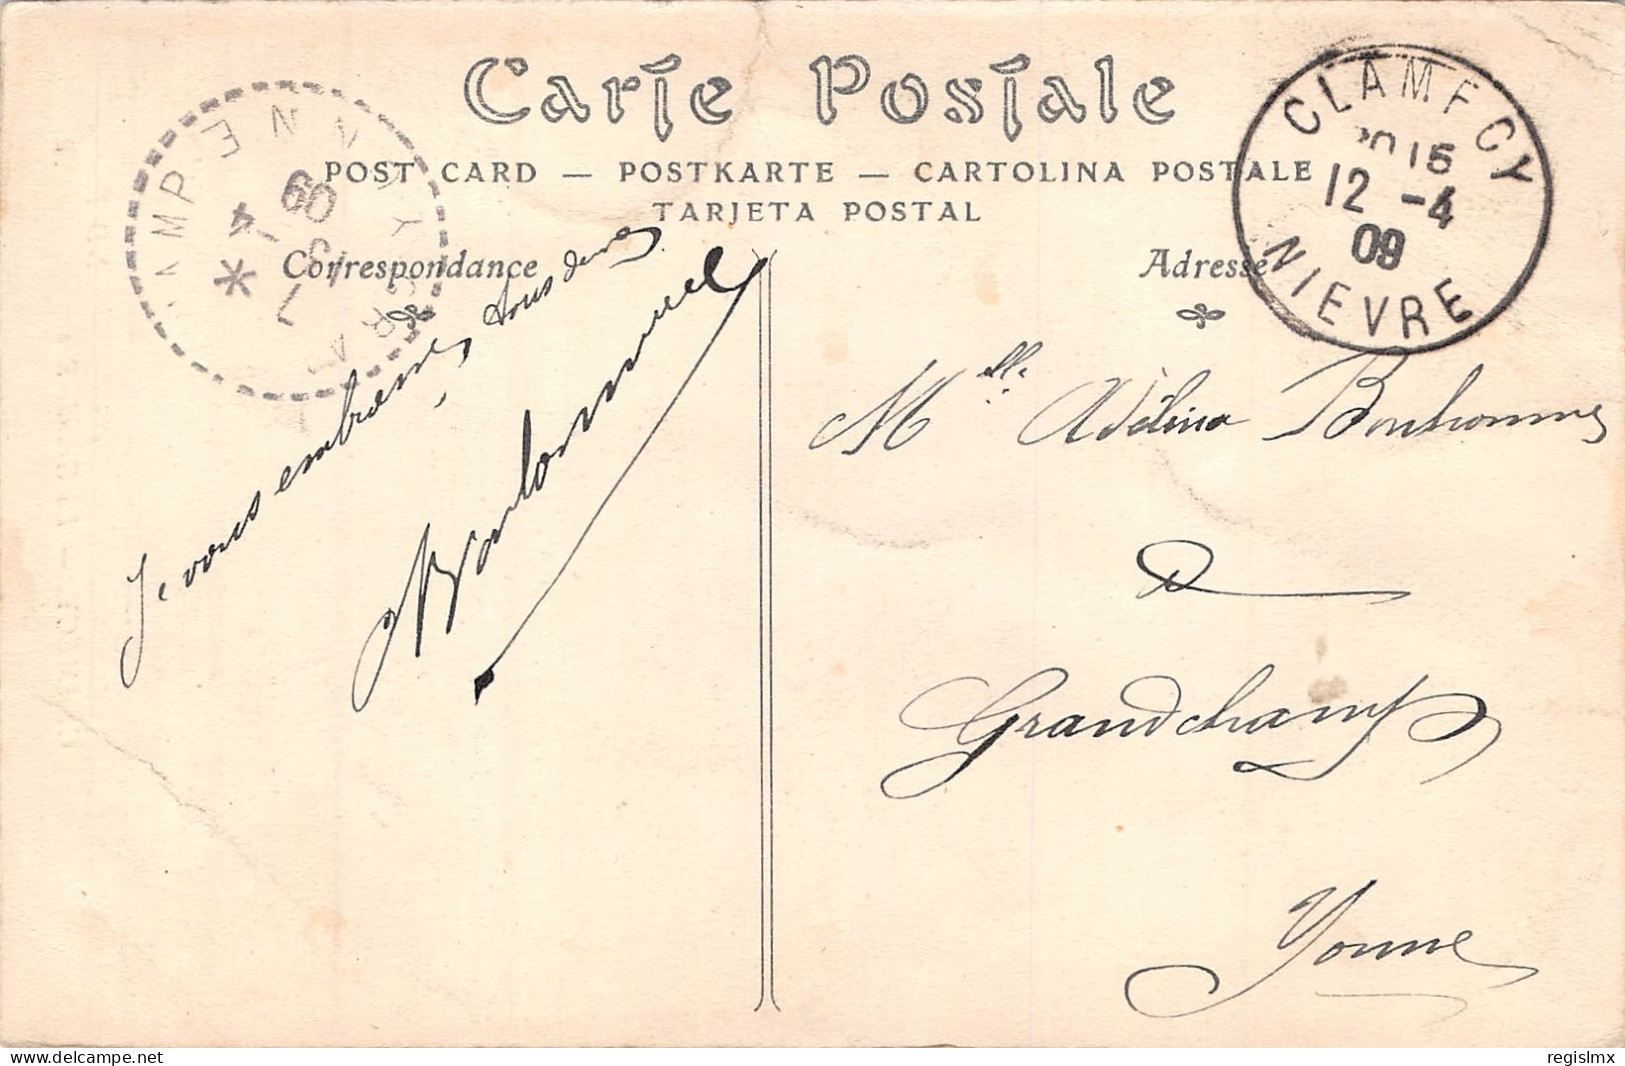 Carte Postale
POST CARD — POSTKARTE — CARTOLINA POSTALE
TARJETA POSTAL
Correspondance
Adresse
CLAMECY
15
12 -4
09
NIEVRE
13
-4
09
Je vous embrasse tous deux
Mlle Adélina Bonhomme
à
Grandchamp
Yonne
regislmx